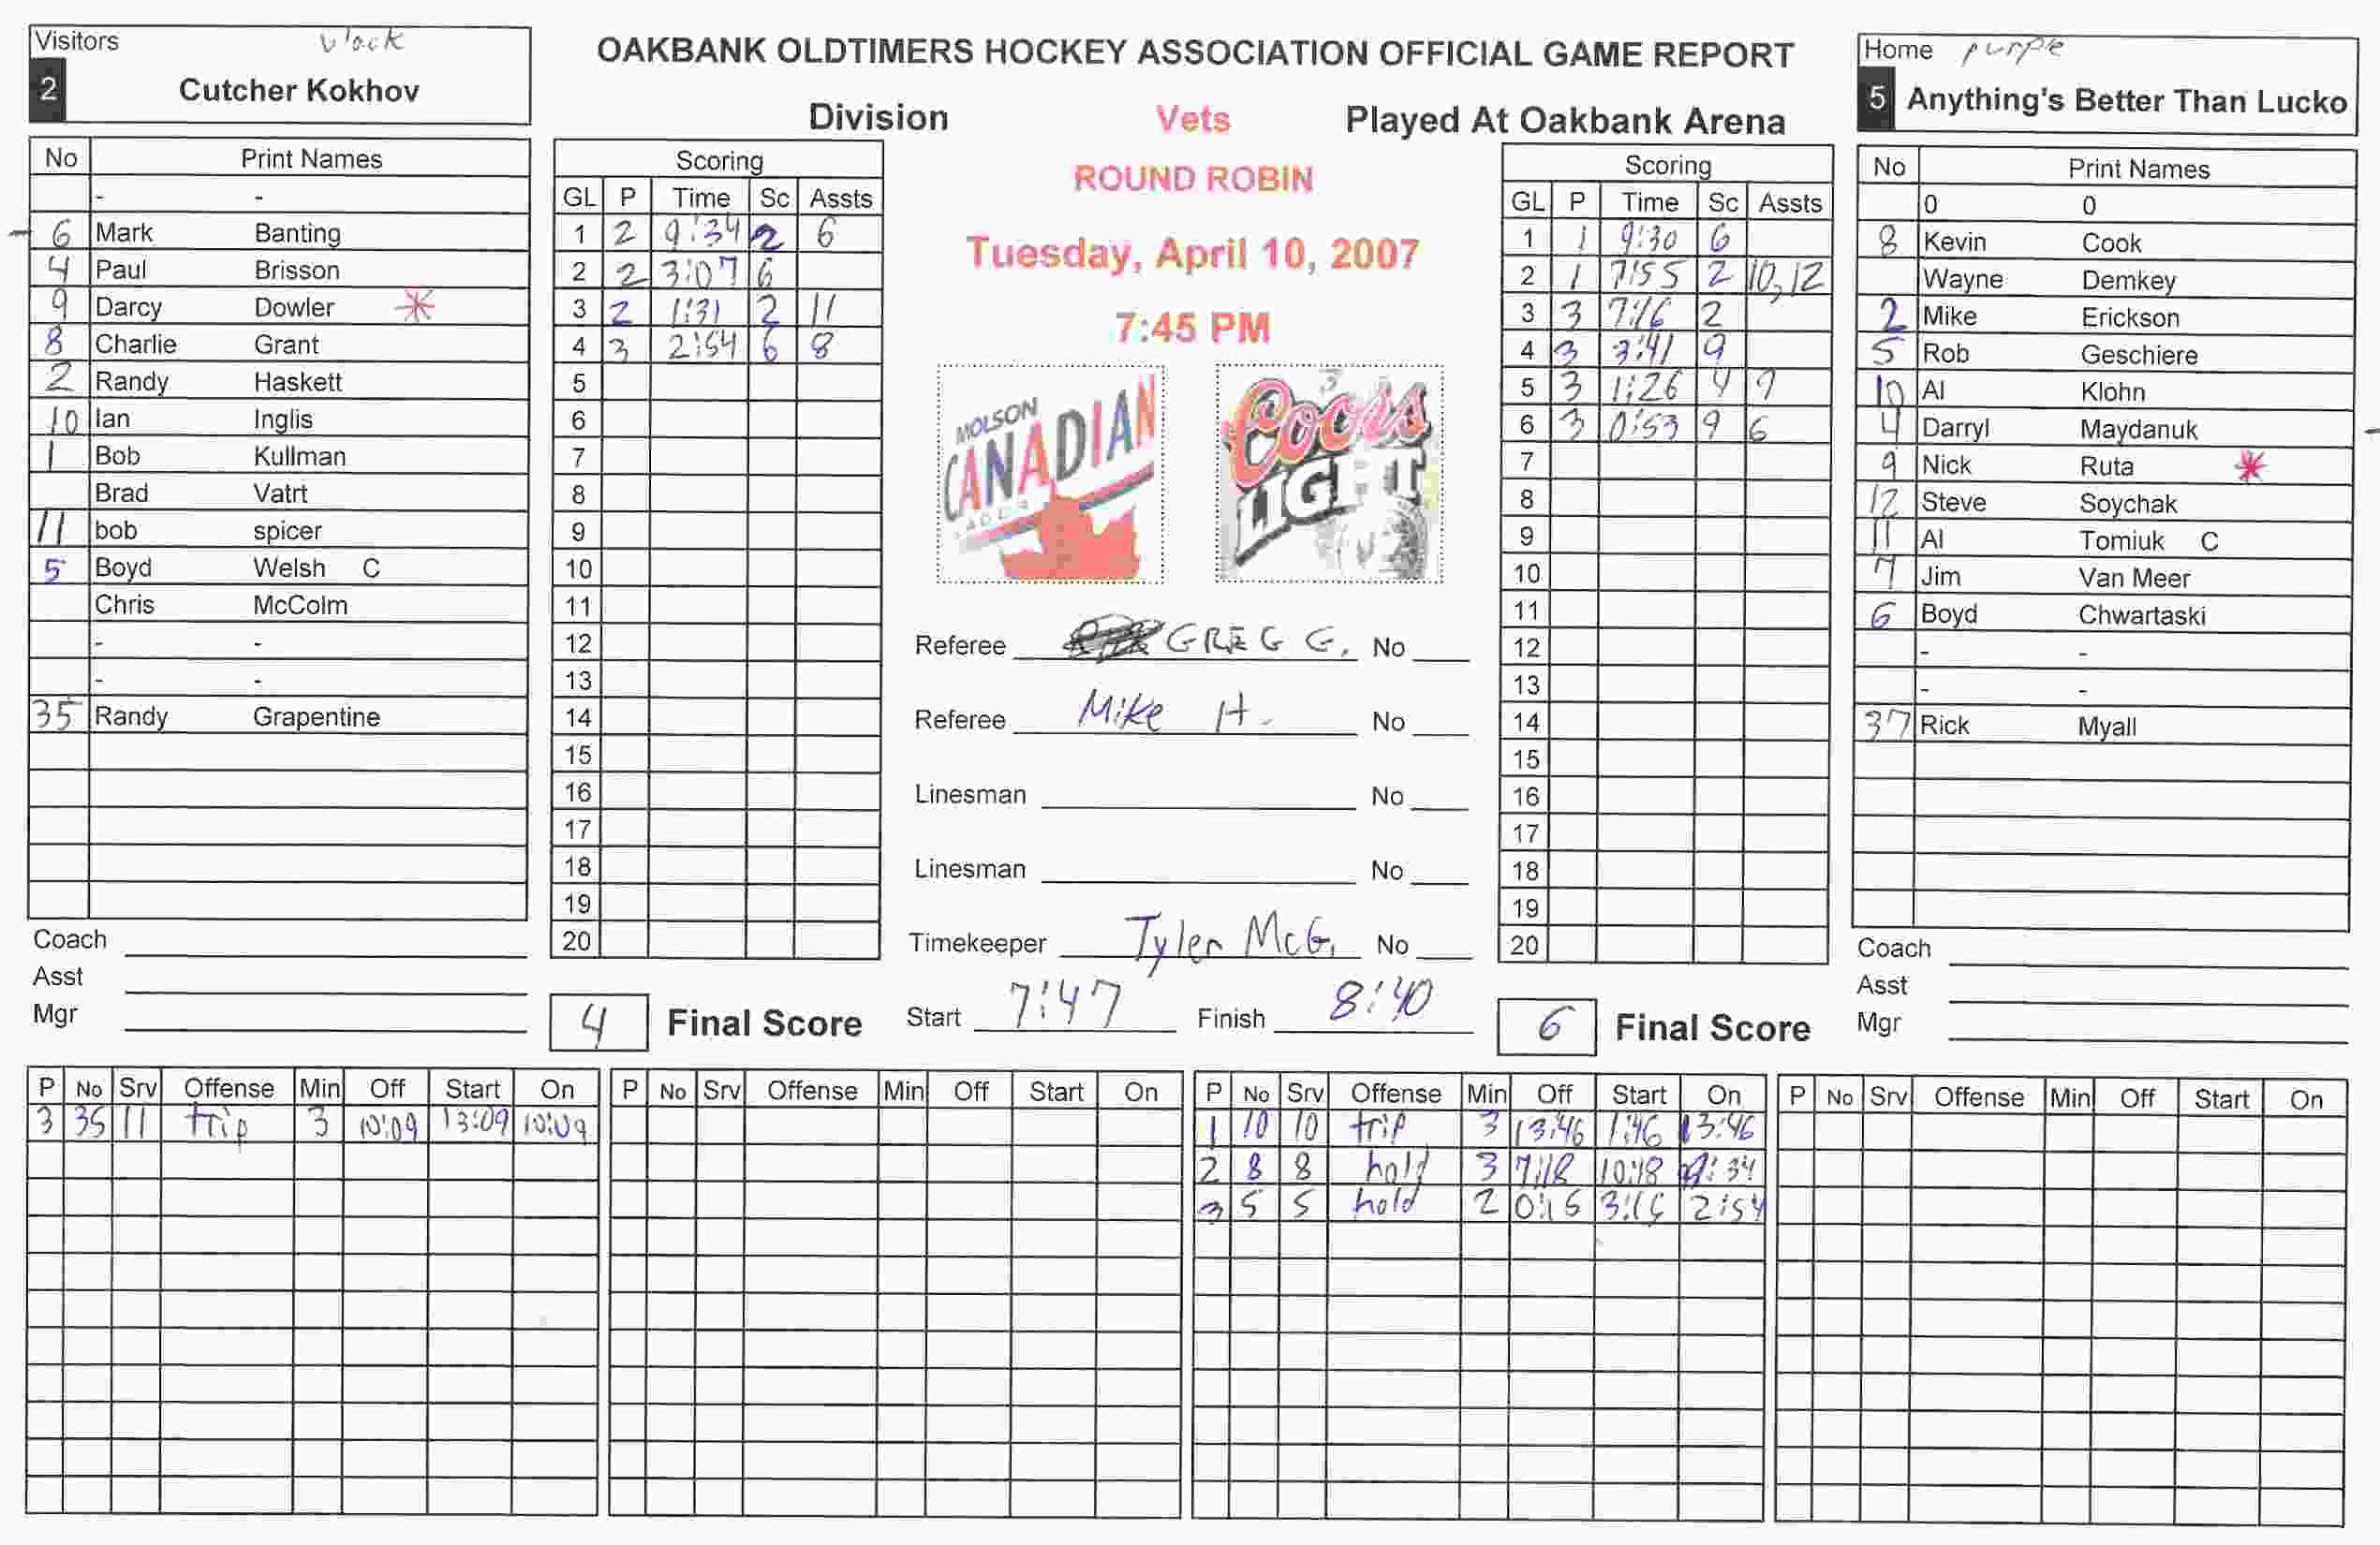 Visitors black
2 Cutcher Kokhov
OAKBANK OLDTIMERS HOCKEY ASSOCIATION OFFICIAL GAME REPORT
Division Vets Played At Oakbank Arena
ROUND ROBIN
Tuesday, April 10, 2007
7:45 PM
Home purple
5 Anything's Better Than Lucko
No Print Names
- -
6 Mark Banting
4 Paul Brisson
9 Darcy Dowler *
8 Charlie Grant
2 Randy Haskett
10 Ian Inglis
1 Bob Kullman
Brad Vatrt
11 bob spicer
5 Boyd Welsh C
Chris McColm
- -
- -
35 Randy Grapentine
Coach
Asst
Mgr
Scoring
GL P Time Sc Assts
1 2 9:34 2 6
2 2 3:07 6
3 2 1:31 2 11
4 3 2:54 6 8
5
6
7
8
9
10
11
12
13
14
15
16
17
18
19
20
4 Final Score
MOLSON
CANADIAN
Coors
LIGHT
Referee GREG G. No
Referee Mike H. No
Linesman No
Linesman No
Timekeeper Tyler McG. No
Start 7:47 Finish 8:40
Scoring
GL P Time Sc Assts
1 1 9:30 6
2 1 7:55 2 10,12
3 3 7:16 2
4 3 3:41 9
5 3 1:26 4 9
6 3 0:53 9 6
7
8
9
10
11
12
13
14
15
16
17
18
19
20
6 Final Score
No Print Names
0 0
8 Kevin Cook
Wayne Demkey
2 Mike Erickson
5 Rob Geschiere
10 Al Klohn
4 Darryl Maydanuk
9 Nick Ruta *
12 Steve Soychak
11 Al Tomiuk C
Jim Van Meer
6 Boyd Chwartaski
- -
- -
37 Rick Myall
Coach
Asst
Mgr
P No Srv Offense Min Off Start On
3 35 11 trip 3 10:09 13:09 10:09
P No Srv Offense Min Off Start On
P No Srv Offense Min Off Start On
1 10 10 trip 3 13:46 1:46 13:46
2 8 8 hold 3 7:18 10:18 9:34
3 5 5 hold 2 0:15 3:15 2:54
P No Srv Offense Min Off Start On